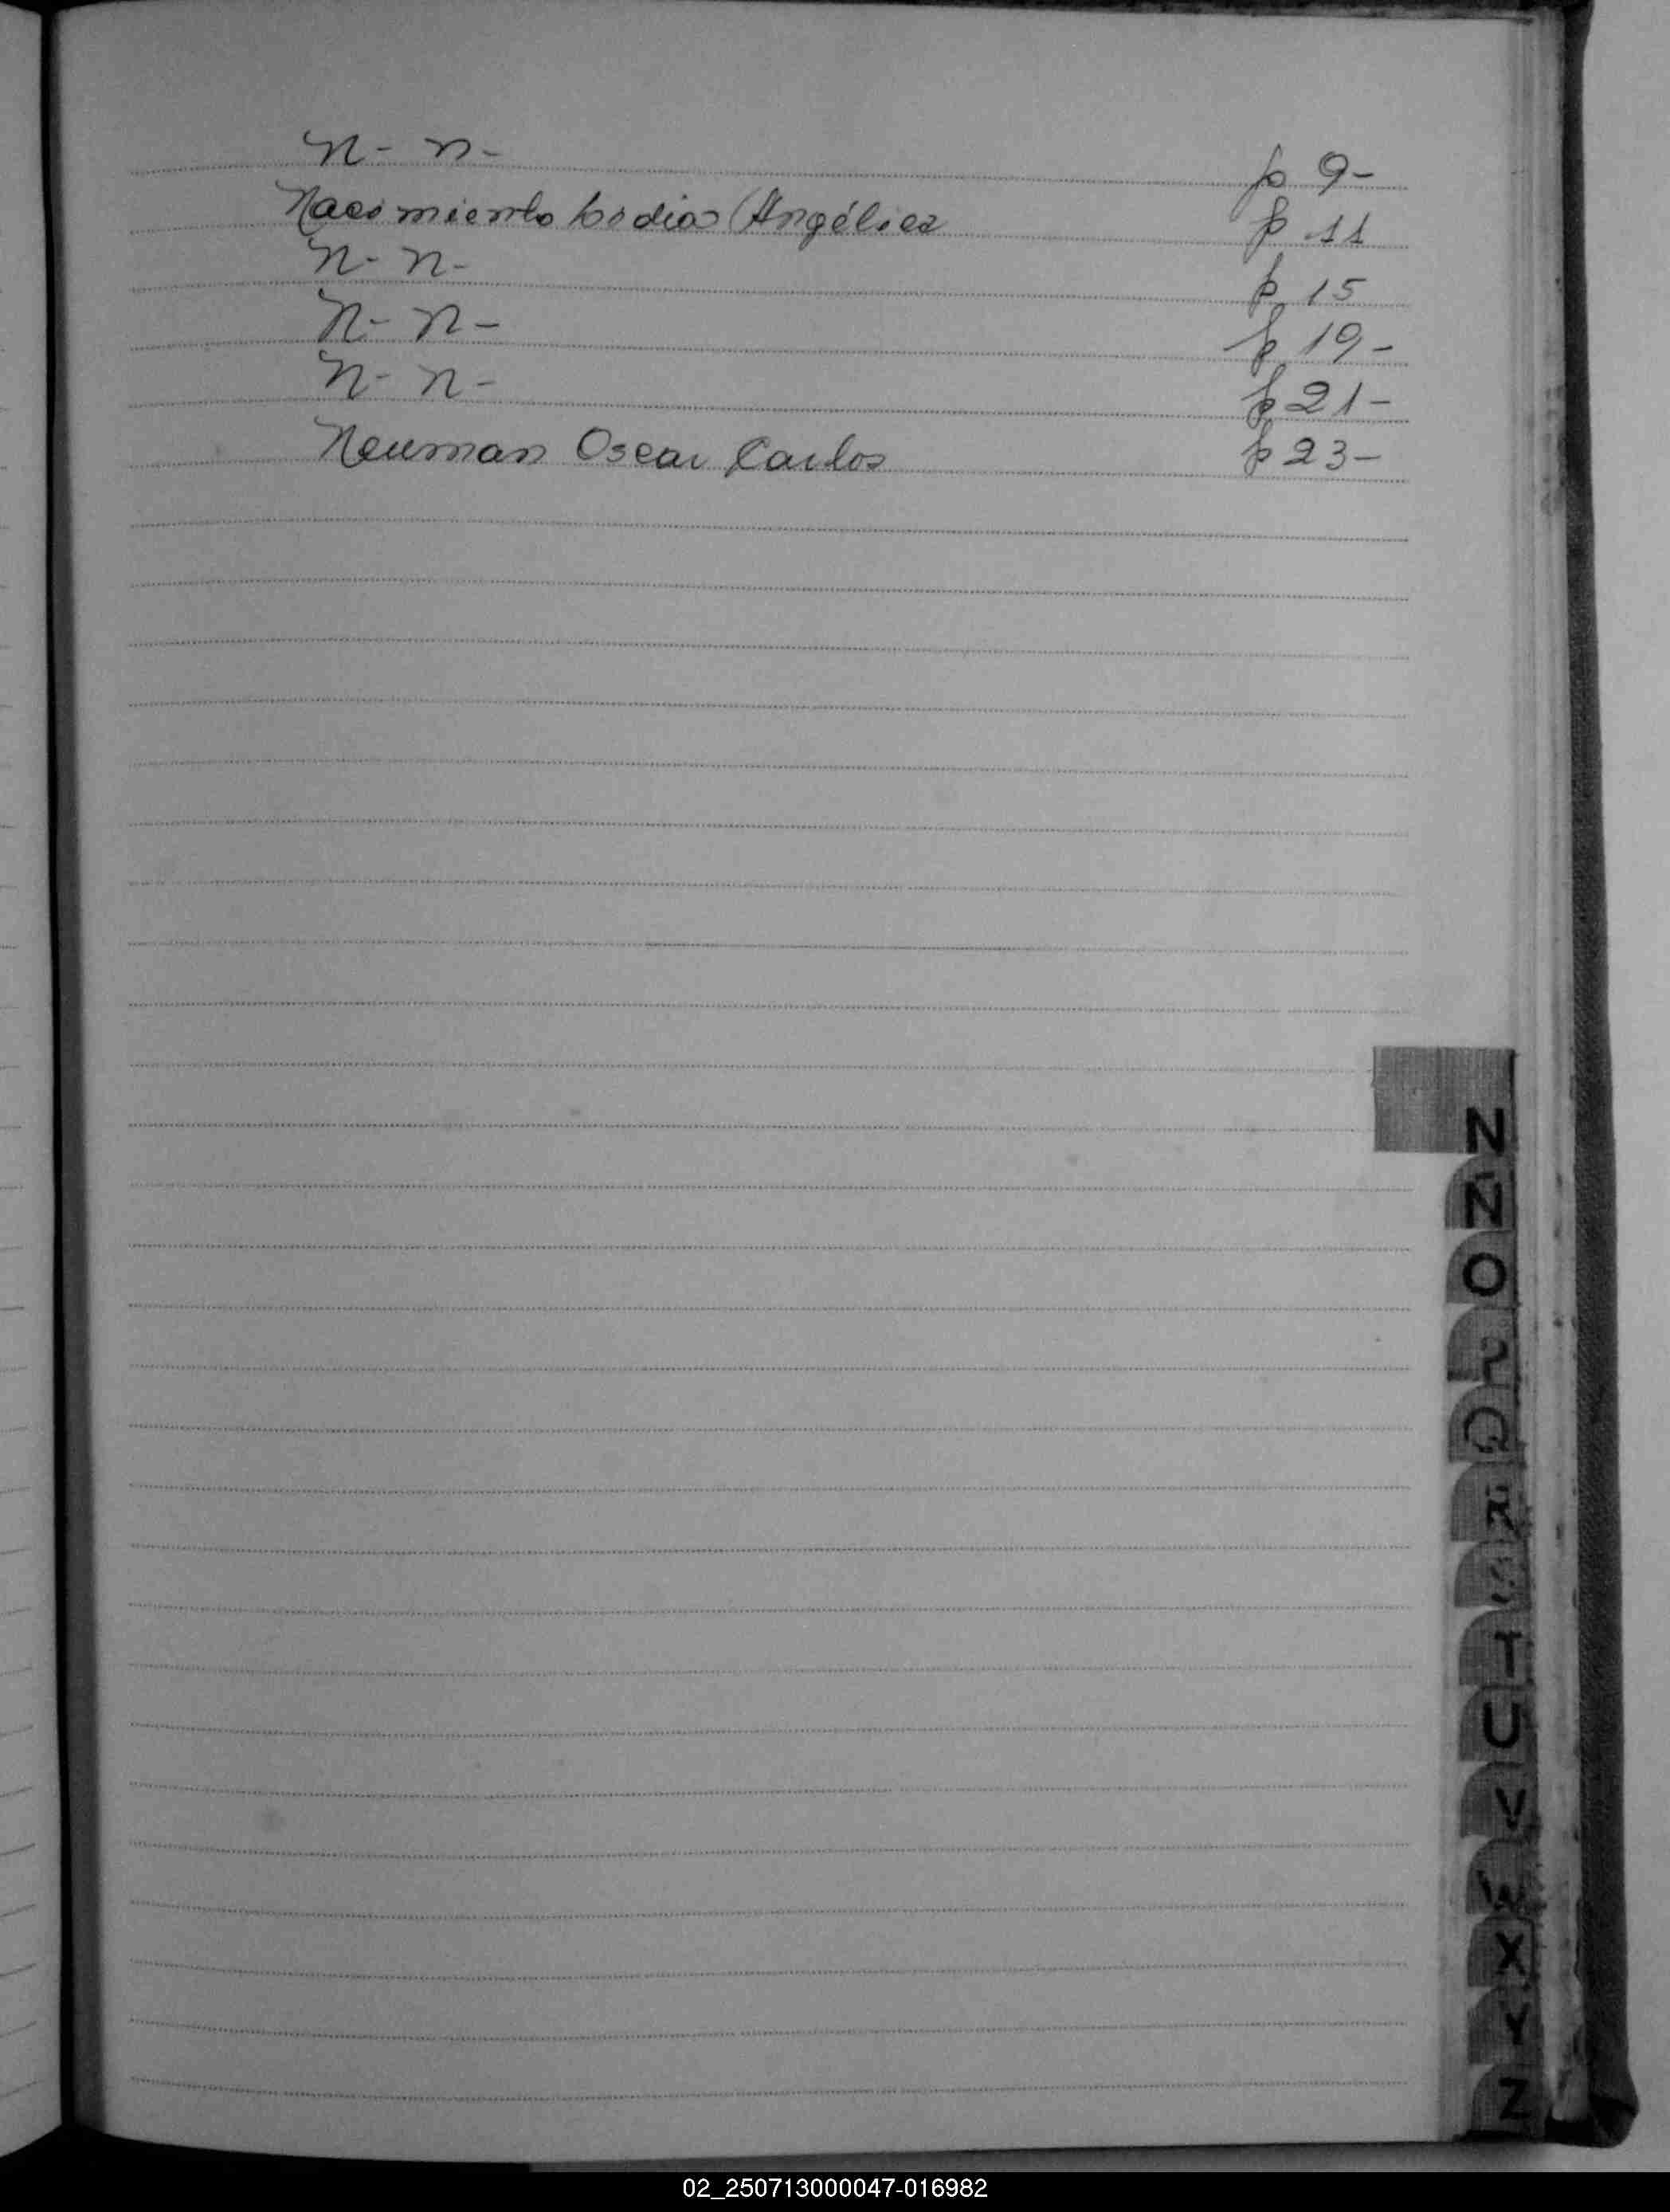 N- N- p 9-
Nacimiento (Angélica p 11
N- N- p 15
N- N- p 19-
N- N- p 21-
Neuman Oscar Carlos p 23-
N
Ñ
O
P
Q
R
S
T
U
V
W
X
Y
Z
02_250713000047-016982